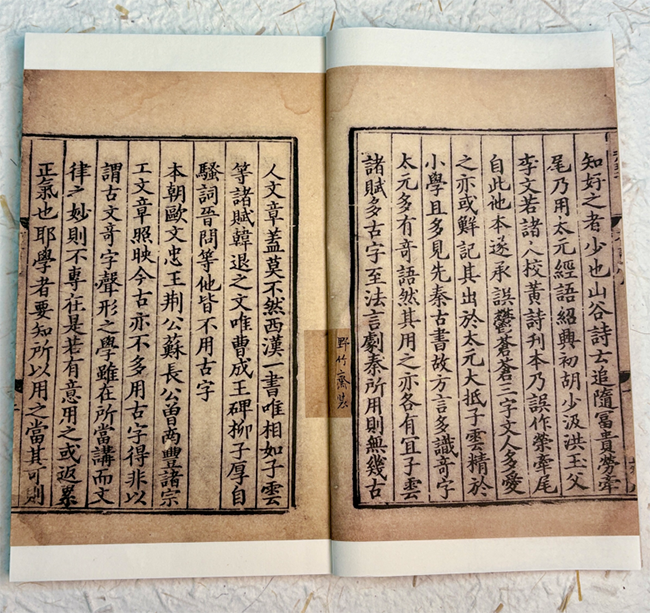 知好之者少也山谷詩云追隨冨貴勞牽
尾乃用太元經語紹興初胡少汲洪玉父
李文若諸人校黃詩刊本乃誤作榮牽尾
自此他本遂承誤鬱蒼蒼三字文人多愛
之亦或鮮記其出於太元大抵子雲精於
小學且多見先秦古書故方言多識奇字
太元多有奇語然其用之亦各有宜子雲
諸賦多古字至法言劇秦所用則無幾古
野竹齋裝
人文章蓋莫不然西漢一書唯相如子雲
等諸賦韓退之文唯曹成王碑栁子厚自
騷詞晉問等他皆不用古字
本朝歐文忠王荊公蘇長公曾南豐諸宗
工文章照映今古亦不多用古字得非以
謂古文奇字聲形之學雖在所當講而文
律之妙則不專在是若有意用之或返累
正氣也耶學者要知所以用之當其可則